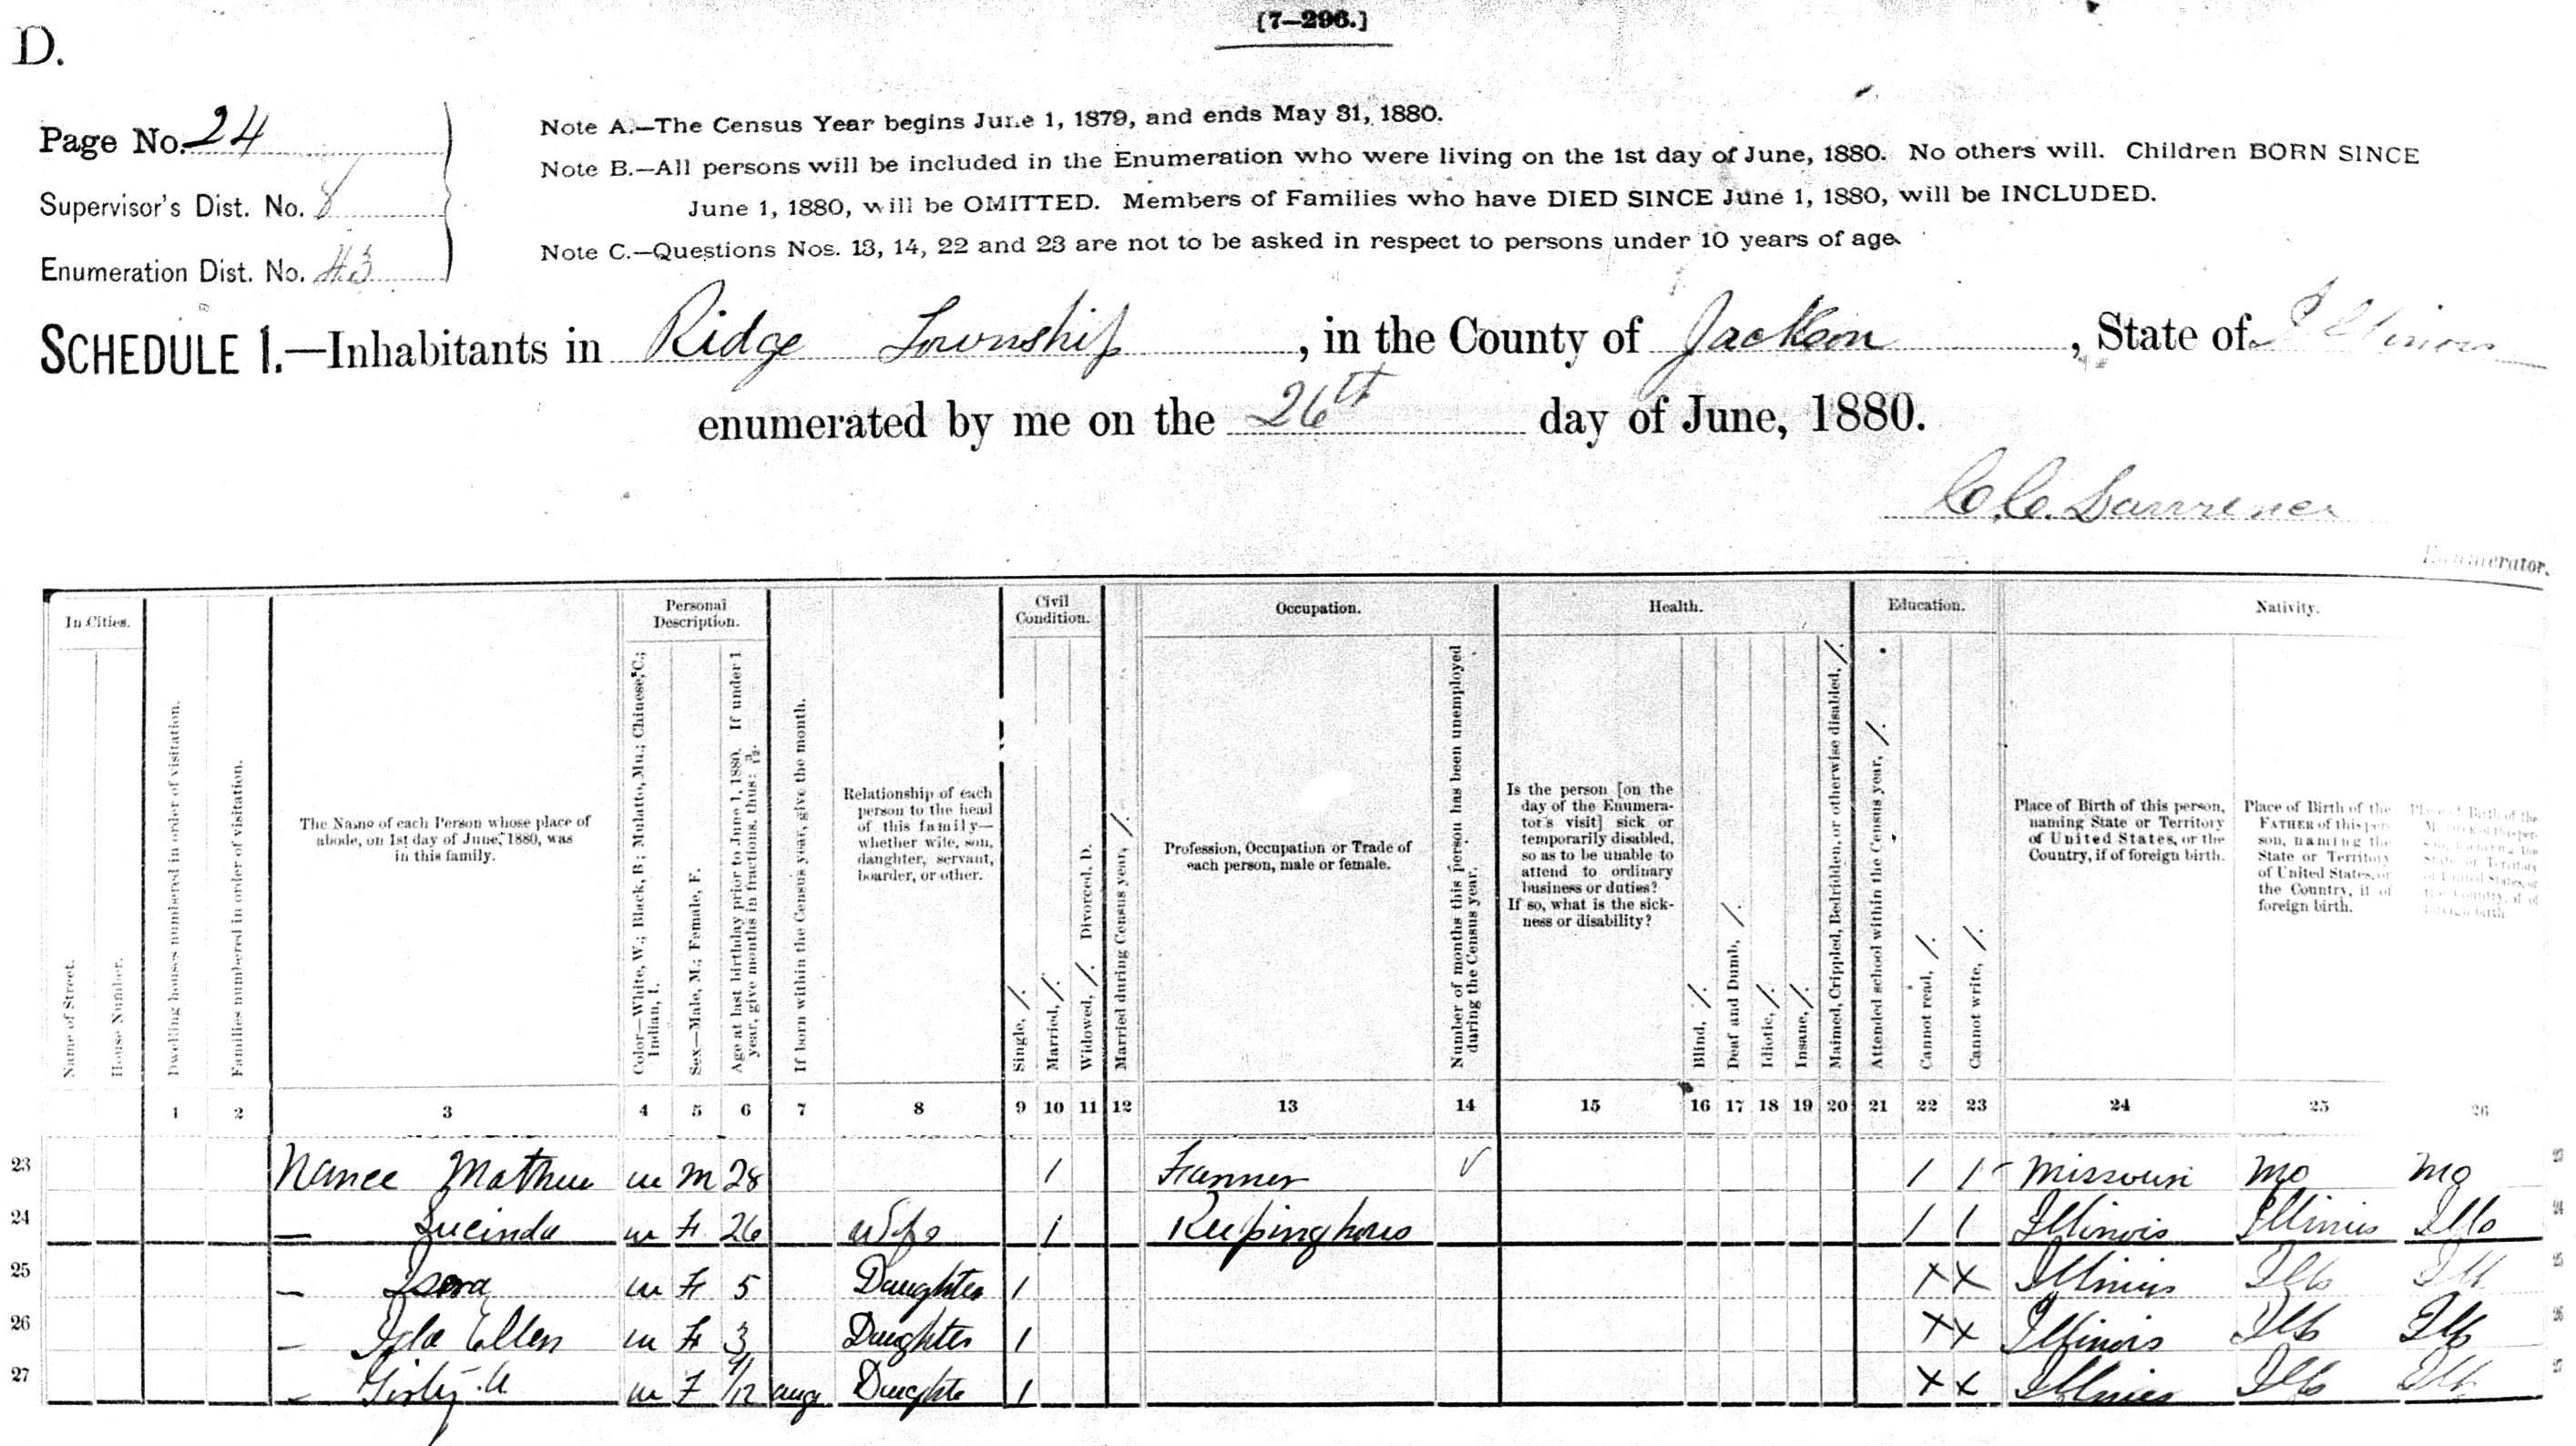 [7—296.]
D.
Page No. 24
Supervisor's Dist. No. 8
Enumeration Dist. No. 43
Note A.—The Census Year begins June 1, 1879, and ends May 31, 1880.
Note B.—All persons will be included in the Enumeration who were living on the 1st day of June, 1880. No others will. Children BORN SINCE
June 1, 1880, will be OMITTED. Members of Families who have DIED SINCE June 1, 1880, will be INCLUDED.
Note C.—Questions Nos. 13, 14, 22 and 23 are not to be asked in respect to persons under 10 years of age.
SCHEDULE 1.—Inhabitants in Ridge Township, in the County of Jackson, State of Illinois
enumerated by me on the 26th day of June, 1880.
C. C. Lawrence
Enumerator.
In Cities.
Name of Street.
House Number.
Dwelling houses numbered in order of visitation.
Families numbered in order of visitation.
The Name of each Person whose place of
abode, on 1st day of June, 1880, was
in this family.
Personal
Description.
Color—White, W.; Black, B.; Mulatto, Mu.; Chinese, C.;
Indian, I.
Sex—Male, M.; Female, F.
Age at last birthday prior to June 1, 1880. If under 1
year, give months in fractions, thus: 3/12.
If born within the Census year, give the month.
Relationship of each
person to the head
of this family—
whether wife, son,
daughter, servant,
boarder, or other.
Civil
Condition.
Single, /.
Married, /.
Widowed, /. Divorced, D.
Married during Census year, /.
Occupation.
Profession, Occupation or Trade of
each person, male or female.
Number of months this person has been unemployed
during the Census year.
Health.
Is the person [on the
day of the Enumera-
tor's visit] sick or
temporarily disabled,
so as to be unable to
attend to ordinary
business or duties?
If so, what is the sick-
ness or disability?
Blind, /.
Deaf and Dumb, /.
Idiotic, /.
Insane, /.
Maimed, Crippled, Bedridden, or otherwise disabled, /.
Education.
Attended school within the Census year, /.
Cannot read, /.
Cannot write, /.
Nativity.
Place of Birth of this person,
naming State or Territory
of United States, or the
Country, if of foreign birth.
Place of Birth of the
FATHER of this per-
son, naming the
State or Territory
of United States, or
the Country, if of
foreign birth.
Place of Birth of the
MOTHER of this per-
son, naming the
State or Territory
of United States, or
the Country, if of
foreign birth.
1 2 3 4 5 6 7 8 9 10 11 12 13 14 15 16 17 18 19 20 21 22 23 24 25 26
23 Nance Mathew W M 28 / Farmer √ / / Missouri Mo Mo 23
24 — Lucinda W F 26 Wife / Keeping hous / / Illinois Illinois Ills 24
25 — Isora W F 5 Daughter / X X Illinois Ills Ill 25
26 — Ida Ellen W F 3 Daughter / X X Illinois Ills Ills 26
27 — W F /12 aug Daughte / X X Illinois Ills Ill 27